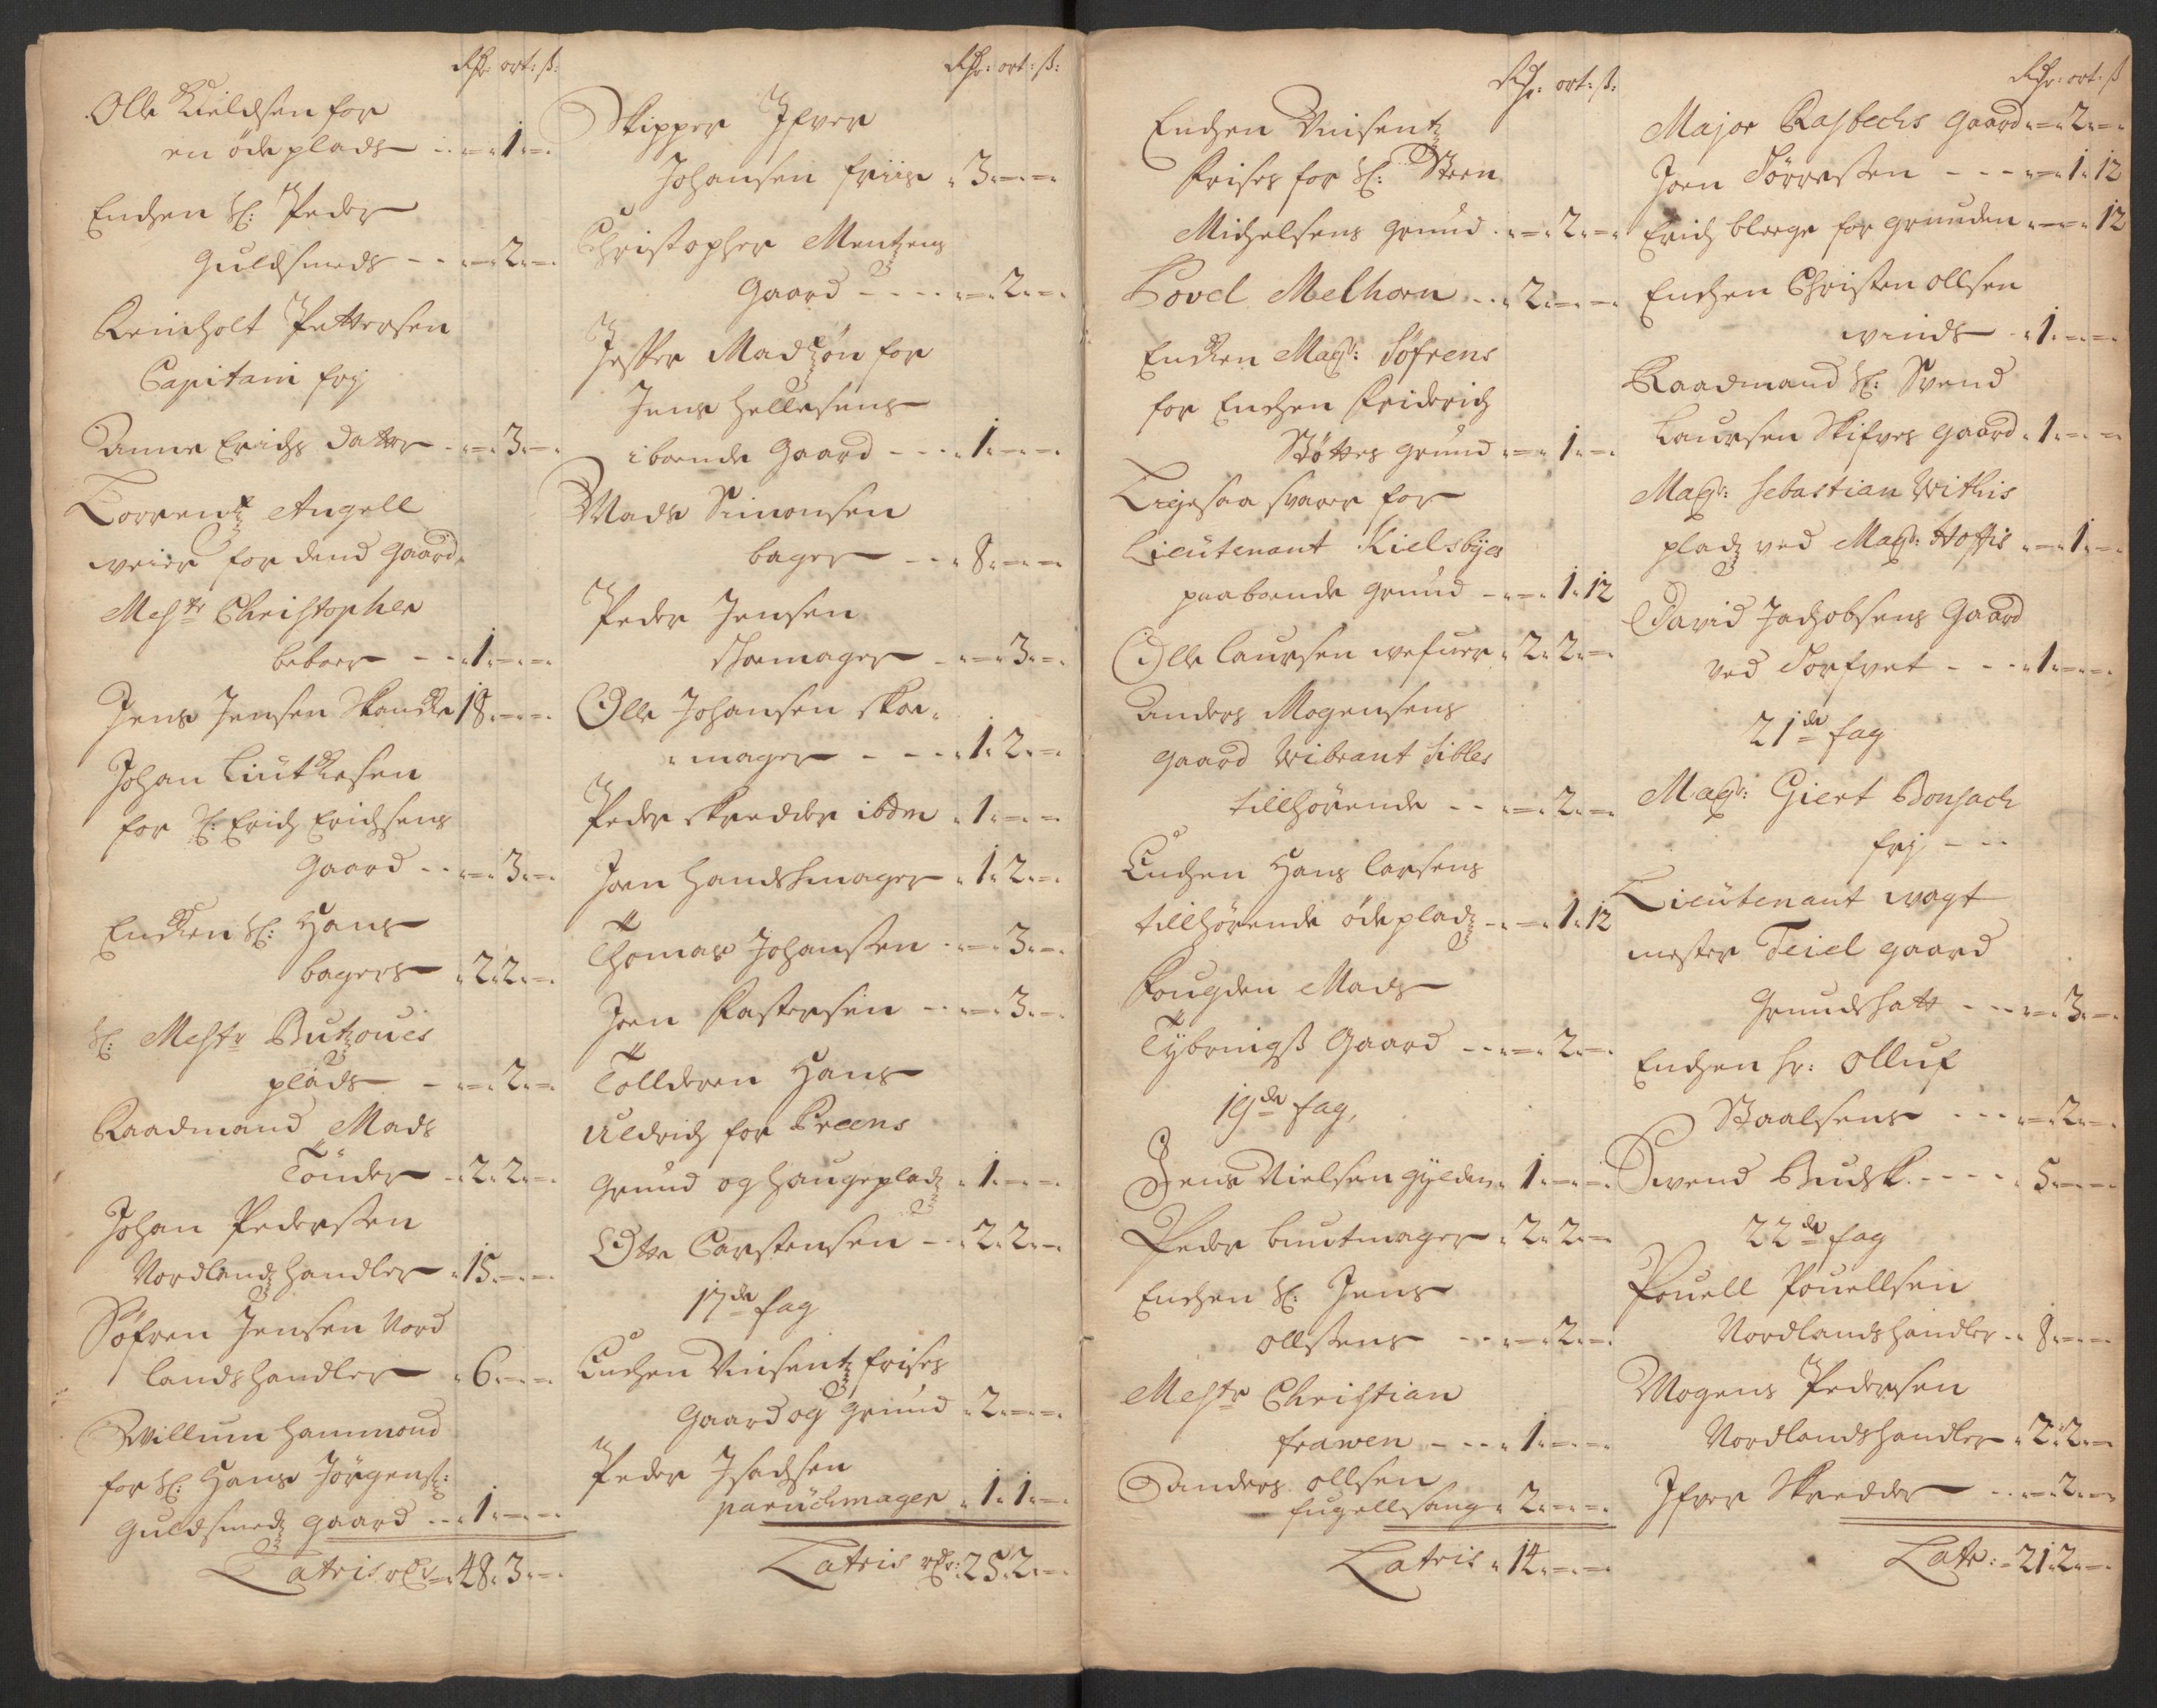 Rdr: ort: ß:
Olle Kieldsen for
en øde plads - - „ — „ 1 „ — „
Enchen Sl: Peder
Guldsmeds - - „ — „ 2 „ — „
Reinholt Pettersen
Capitain frj
Anne Erichs datter - „ — „ 3 „ — „
Lorrentz Angell
weier for dend Gaard
Mestr Christopher
beboer - - „ 1 „ — „ — „
Jens Jensen 18 „ — „ — „
Johan Lüutkesen
for Sl: Erich Erichsens
Gaard - - „ — „ 3 „ — „
Enckien Sl: Hans
bagers „ 2 „ 2 „ — „
Sl: Mestr Butzoues
plads - „ — „ 2 „ — „
Raadmand Mads
Tönder - „ 2 „ 2 „ — „
Johan Pedersen
Nordlandz handler „ 15 „ — „ — „
Söfren Jensen Nord
lands handler „ 6 „ — „ — „
Willum Hammond
for Sl: Hans Jörgens:
Guldsmedz gaard - - „ 1 „ — „ — „
Lateris rdr „ 48 „ 3 „ — „
Rdr: ort: ß:
Skipper Ifver
Johansen friis „ 3 „ — „ — „
Christopher Mentzens
Gaard - - - - „ — „ 2 „ — „
Jesper Madzön for
Jens Hellesens
iboende Gaard - - - „ 1 „ — „ — „
Mads Simonsen
bager - - „ 8 „ — „ — „
Peder Jensen
skoemager - „ — „ 3 „ — „
Olle Johansen skoe„
„mager - - - „ 1 „ 2 „ — „
Peder skredder ibdm „ 1 „ — „ — „
Joen Handskmager „ 1 „ 2 „ — „
Thomas Johansen - „ — „ 3 „ — „
Joen Pastersen - - „ — „ 3 „ — „
Tolleren Hans
Uldrich for Preens
Grund og Haugepladz „ 1 „ — „ — „
Otte Carstensen - „ 2 „ 2 „ — „
17de fag
Enchen Vinsentz frises
Gaard og Grund „ 2 „ — „ — „
Peder Isachsen
parückmager „ 1 „ 1 „ — „
Lateris rdr: 25 „ 2 „ — „
Rdr: ort: ß:
Enchen Vinsentz
Frises for Sl: Steen
Michelsens grund „ — „ 2 „ — „
Povel Melhorn - - „ 2 „ — „ — „
Enckien Magr: Söfrens
for Enchen Friderich
Støttes grund „ — „ 1 „ — „
Ligesaa svarer for
Lieutenant Kielsbyes
paaboende grund - „ — „ 1 „ 12
Olle Laursen wefuer „ 2 „ 2 „ — „
Anders Mogensens
gaard Wibrant Sibles
tillhörende - - „ — „ 2 „ — „
Enchen Hans Larsens
tillhörende öde pladz „ — „ 1 „ 12
Fougden Mads
Tybringß Gaard - - „ — „ 2 „ — „
19de fag,
Jens Nielsen gylden „ 1 „ — „ — „
Peder buntmager „ 2 „ 2 „ — „
Enchen Sl: Jens
ollsens - - „ — „ 2 „ — „
Mestr Christian
frawen - - - „ 1 „ — „ — „
Anders ollsen
fugellsang „ 2 „ — „ — „
Lateris „ 14 „ — „ — „
Rdr: ort: ß
Major Rasbechs Gaard „ — „ 2 „ — „
Joen Törresen - - - „ — „ 1 „ 12
Erich bleege for grunden „ — „ — „ 12
Enchen Christen ollsen
winds - „ 1 „ — „ — „
Raadmand Sl: Svend
Laursen Skifves gaard „ 1 „ — „ — „
Magr: Sebastian Withis
pladz ved Magr: Hoffis „ — „ 1 „ — „
David Jachobsens Gaard
ved Torfvet - - - „ 1 „ — „ — „
21de fag
Magr: Giert Bonsach
frj - - -
Lieütenant wagt
mester Teiel gaard
Grundskatt - - „ — „ 3 „ — „
Enchen Hr: Olluf
Staalsens - - - „ — „ 2 „ — „
Swend Budsk. - - - - „ 5 „ — „ — „
22de fag
Pouell Pouellsen
Nordlands handler „ 8 „ — „ — „
Mogens Pedersen
Nordlandshandler „ 2 „ 2 „ — „
Ifver Skredder - - „ — „ 2 „ — „
Latr: „ 21 „ 2 „ — „